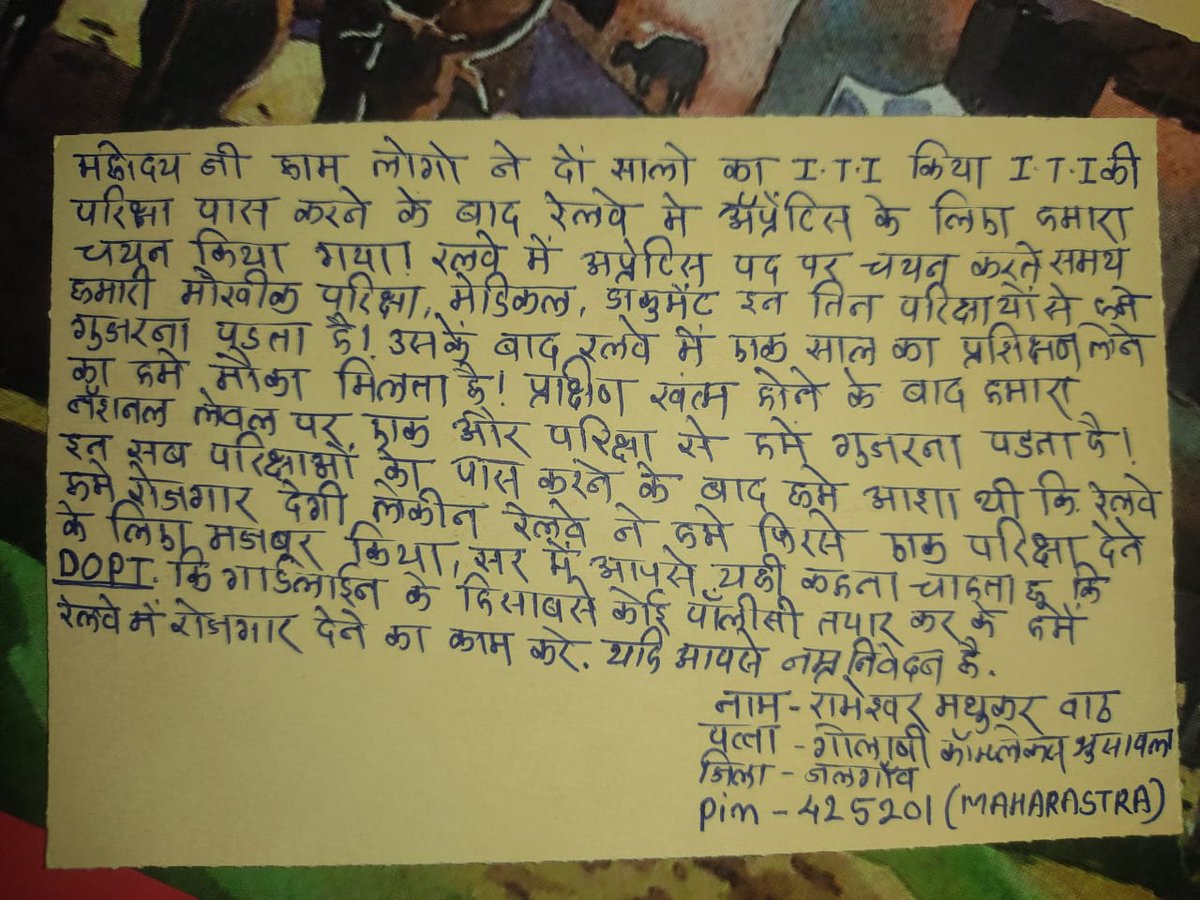 महोदय नी हाम लोगो ने दो सालो का I.T.I किया I.T.I की
परिक्षा पास करने के बाद रेलवे मे अ‍ॅप्रेंटिस के लिए हमारा
चयन किया गया। रलवे में अप्रेटिस पद पर चयन करते समय
हमारी मौखीक परिक्षा, मेडिकल, डाकुमेंट इन तिन परिक्षायों से हमे
गुजरना पडता है। उसकें बाद रलवे में एक साल का प्रशिक्षन लेने
का हमे मौका मिलता है! प्राक्षिण खत्म होने के बाद हमारा
नॅशनल लेवल पर एक और परिक्षा से हमें गुजरना पडता है।
इन सब परिक्षाओं को पास करने के बाद हमे आशा थी कि रेलवे
हमे रोजगार देगी लेकीन रेलवे ने हमे फिरसे एक परिक्षा देने
के लिए मजबूर किया, सर में आपसे यही कहता चाहता हू कि
DOPT. कि गाईलाईन के हिसाबसे कोई पॉलीसी तयार कर के हमें
रेलवे में रोजगार देने का काम करे. यदि आपसे नम्र निवेदन है.
नाम - रामेश्वर मधुकर वाघ
पत्ता - गोलाणी कॉम्प्लेक्स भुसावल
जिला - जलगाँव
Pim - 425201 (MAHARASTRA)